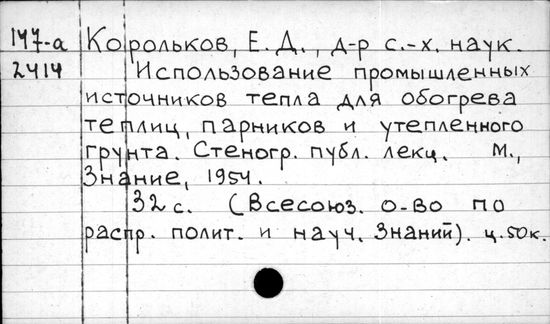 147-а Корольков, Е. Д., д-р с.-х. наук.
2414 Использование промышленных
источников тепла для обогрева
теплиц, парников и утепленного
грунта. Стеногр. публ. лекц. М.,
Знание, 1954.
32 с. (Всесоюз. о-во по
распр. полит. и науч. знаний). ц. 50 к.